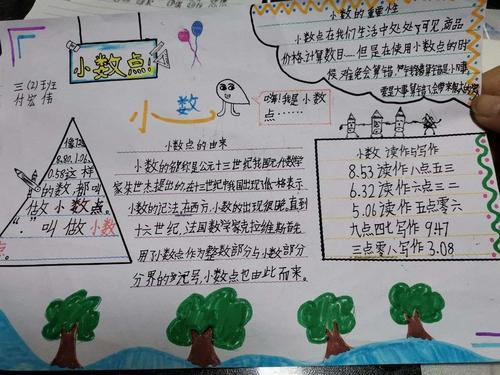 小数点!
三(2)班
付宏伟
小数
嗨!我是小数
点……
小数的重要性
小数点在我们生活中处处可见,商品
价格,计算数目……但是在使用小数点的时
候,难免会算错,
像
8.80,1.06,
0.58这样
的数,都叫
做小数点。
"."叫做小数
点。
小数点的由来
小数的名称是公元十三世纪我国元代数学
家朱世杰提出的,在十三世纪中我国出现了低一格表示
小数的记法,在西方,小数的出现很晚,直到
十六世纪,法国数学家克拉维斯首先
用了小数点作为整数部分与小数部分
分界的号,小数点也由此而来。
小数 读作与写作
8.53 读作 八点五三
6.32 读作 六点三二
5.06 读作 五点零六
九点四七 写作 9.47
三点零八 写作 3.08